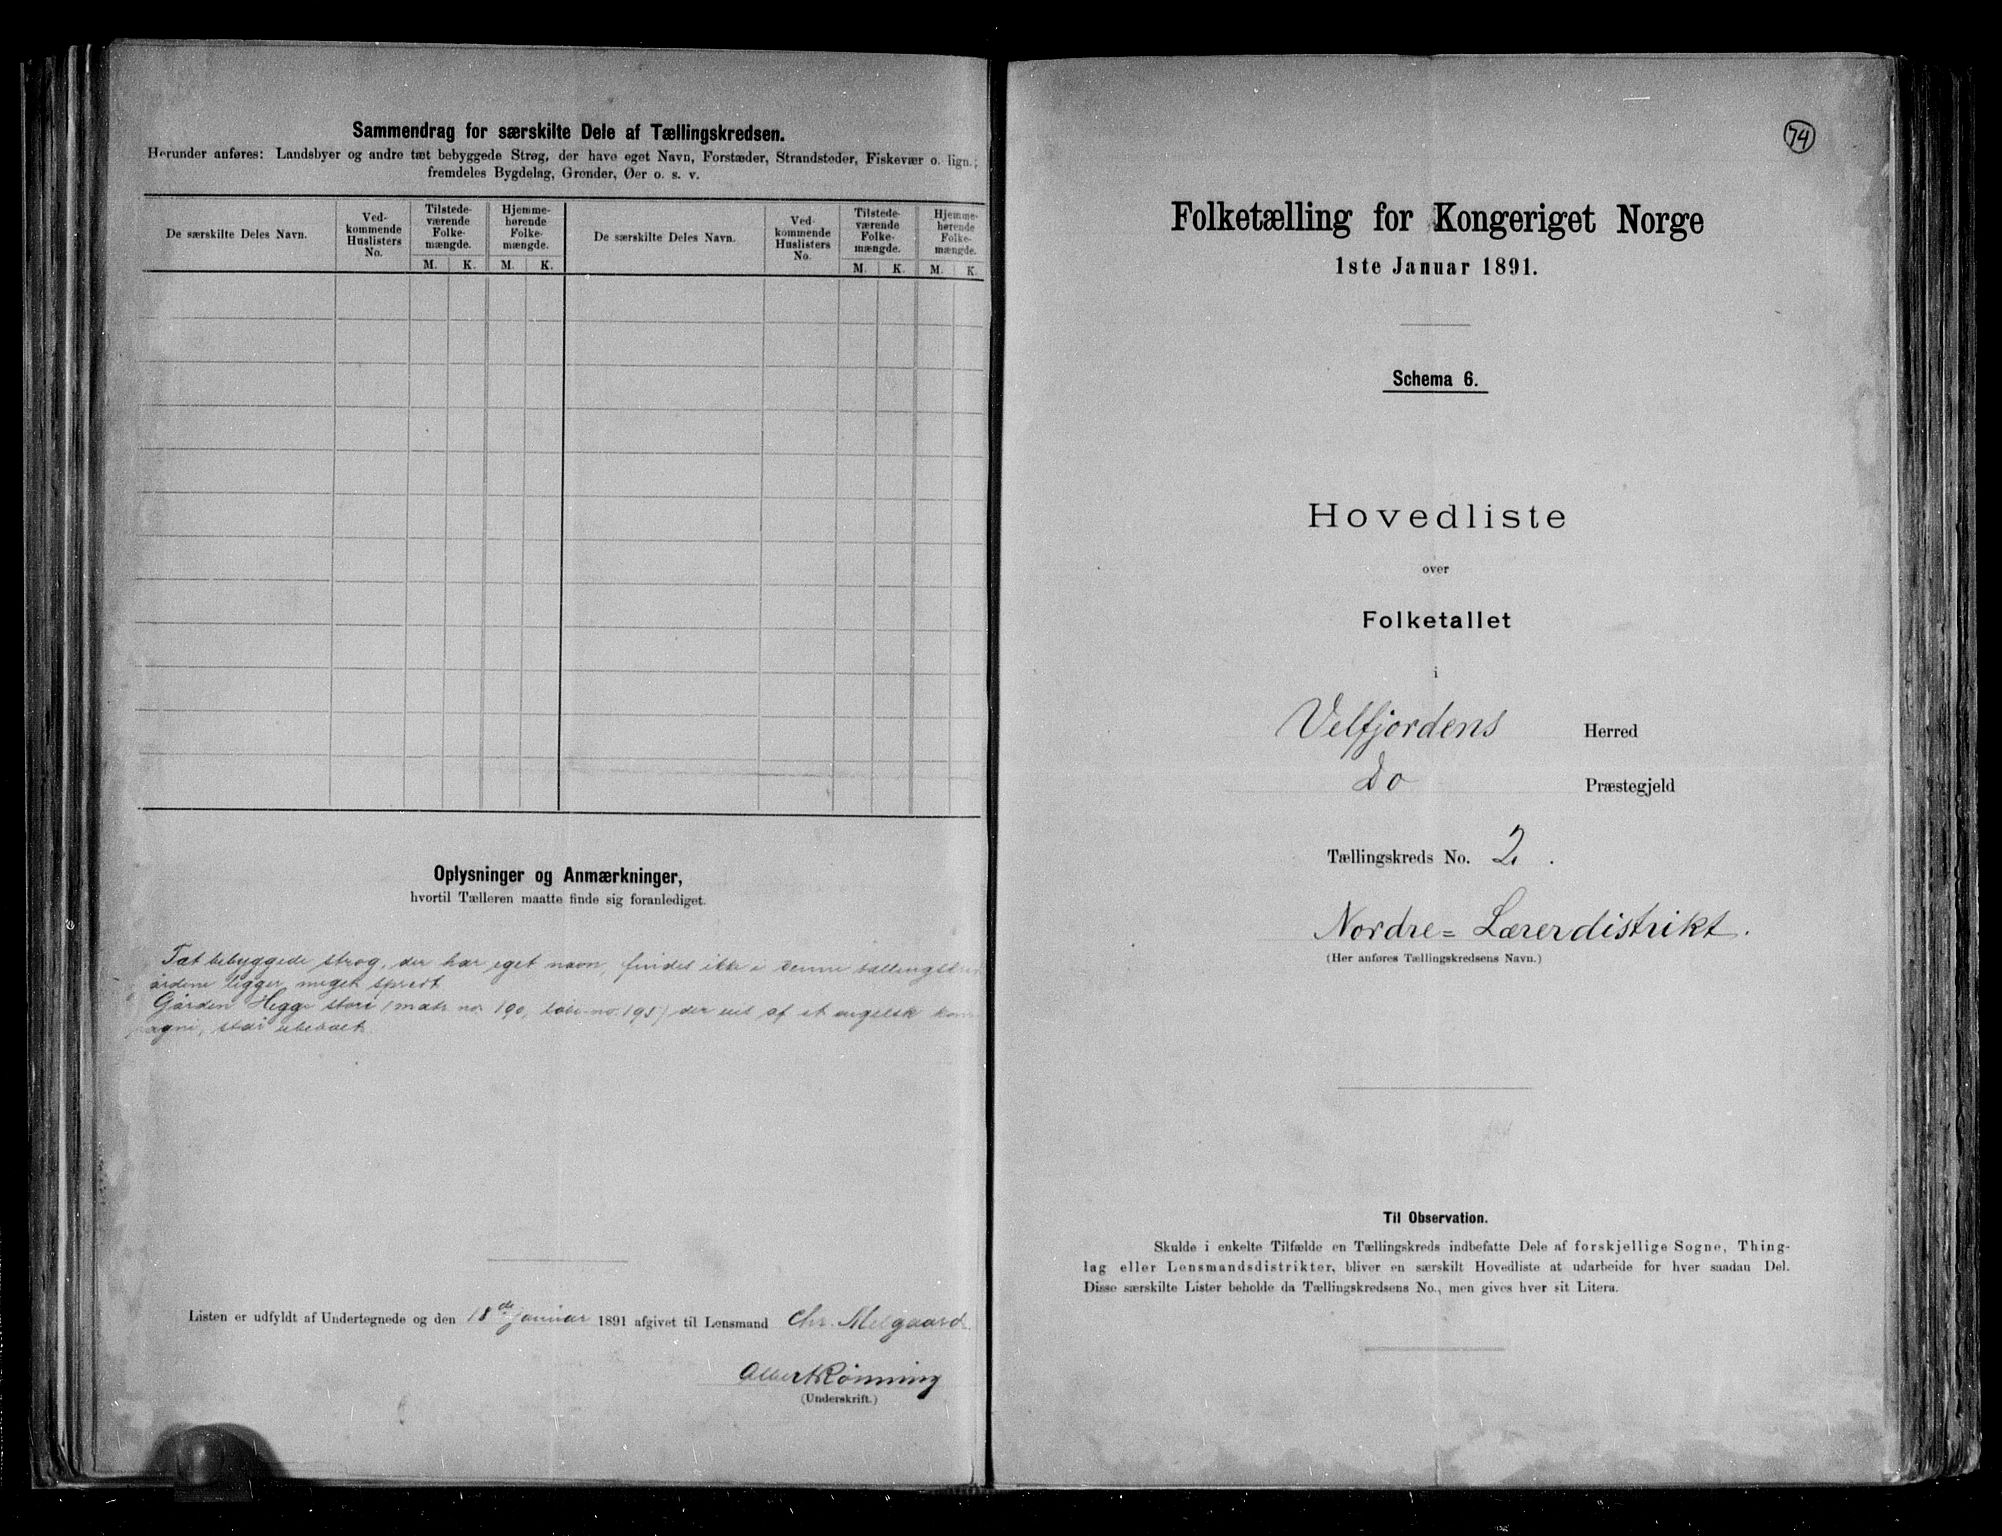 Sammendrag for særskilte Dele af Tællingskredsen.
Herunder anføres: Landsbyer og andre tæt bebyggede Strøg, der have eget Navn, Forstæder, Strandsteder, Fiskevær o. lign.;
fremdeles Bygdelag, Grender, Øer o. s. v.
De særskilte Deles Navn.
Ved-
kommende
Huslisters
No.
Tilstede-
værende
Folke-
mængde.
Hjemme-
hørende
Folke-
mængde.
M. K. M. K.
De særskilte Deles Navn.
Ved-
kommende
Huslisters
No.
Tilstede-
værende
Folke-
mængde.
Hjemme-
hørende
Folke-
mængde.
M. K. M. K.
Oplysninger og Anmærkninger,
hvortil Tælleren maatte finde sig foranlediget.
Tæt bebyggede strøg, der har eget navn, findes ikke i denne
ligger meget spredt
Gården Hegge store (matr. no. 190, no. 195) der eies af et engelsk
står ubeboet
Listen er udfyldt af Undertegnede og den 18de januar 1891 afgivet til Lensmand Chr. Melgaard
Albert Rönning
(Underskrift.)
74
Folketælling for Kongeriget Norge
1ste Januar 1891.
Schema 6.
Hovedliste
over
Folketallet
i
Velfjordens Herred
Do Præstegjeld
Tællingskreds No. 2.
Nordre= Lærerdistrikt.
(Her anføres Tællingskredsens Navn.)
Til Observation.
Skulde i enkelte Tilfælde en Tællingskreds indbefatte Dele af forskjellige Sogne, Thing-
lag eller Lensmandsdistrikter, bliver en særskilt Hovedliste at udarbeide for hver saadan Del.
Disse særskilte Lister beholde da Tællingskredsens No., men gives hver sit Litera.